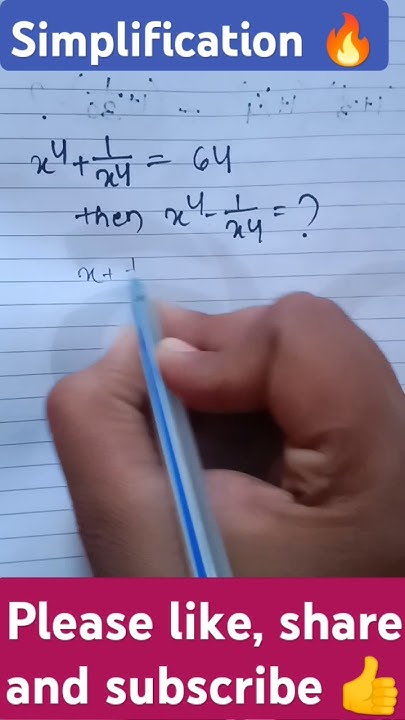 Simplification 🔥
x⁴ + 1/x⁴ = 64
then x⁴ - 1/x⁴ = ?
x + 1
Please like, share
and subscribe 👍